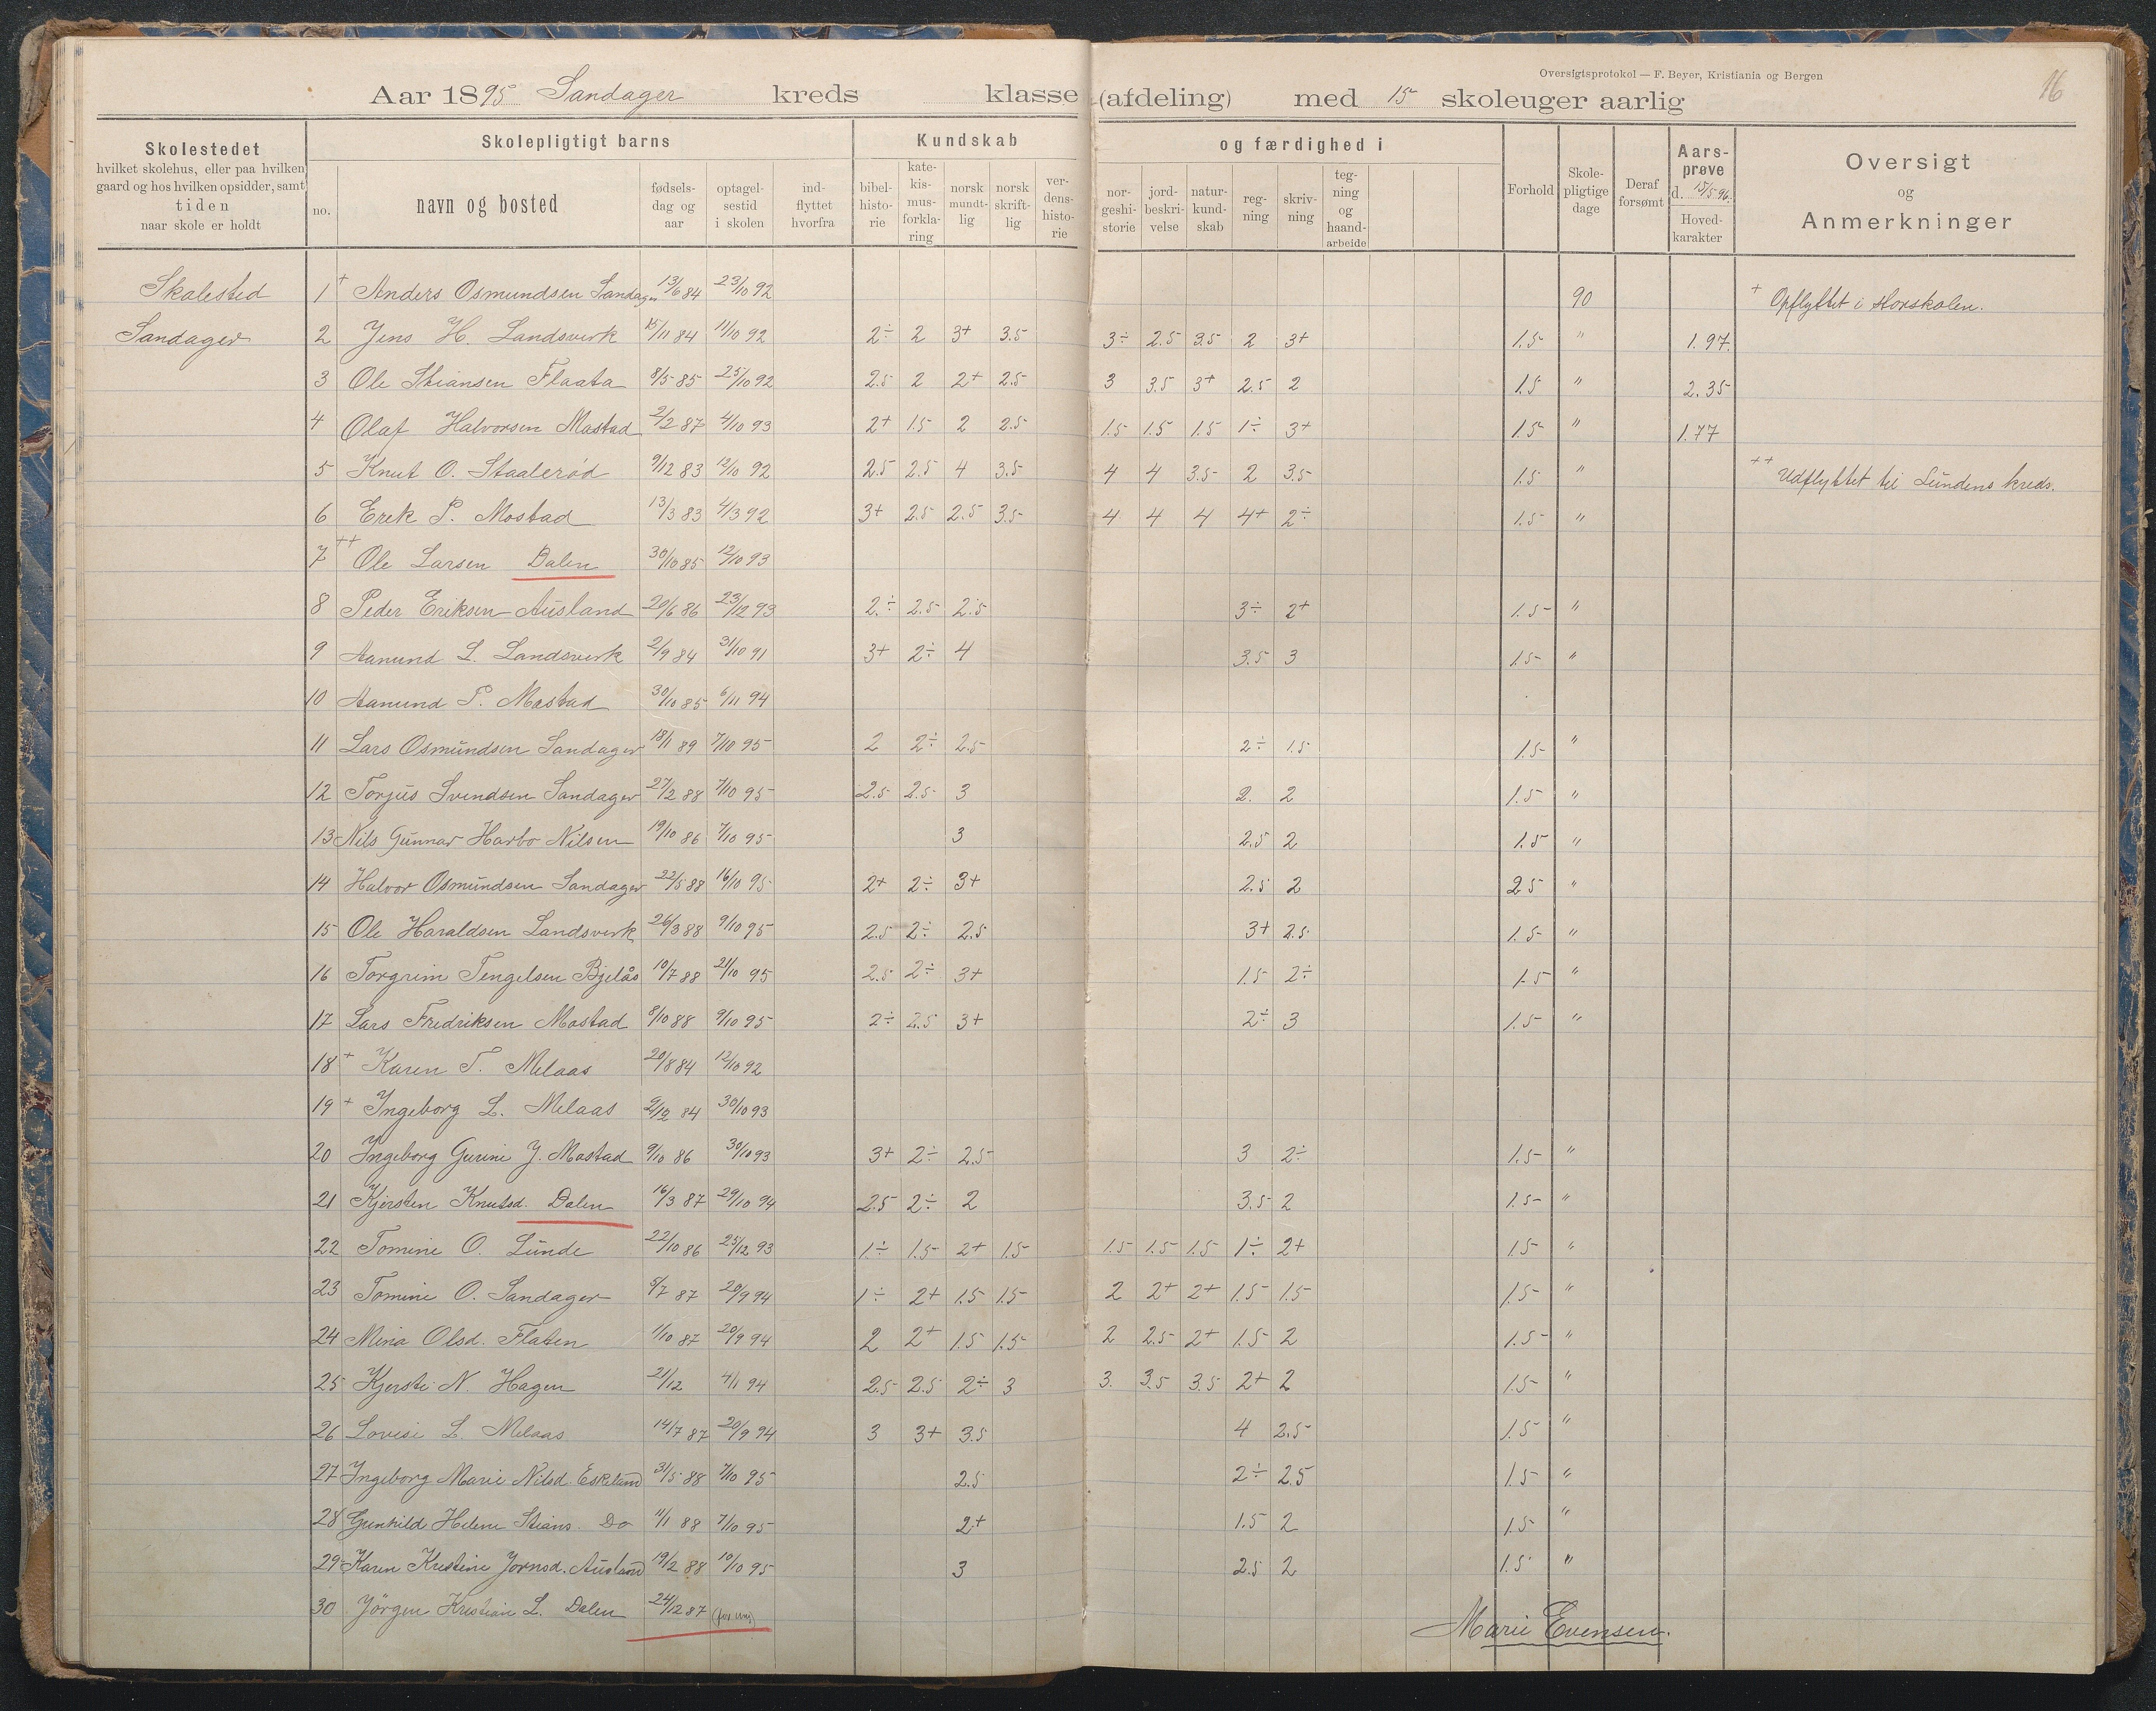 Oversigtsprotokol — F. Beyer, Kristiania og Bergen
16
Aar 1895 Sandager kreds klasse (afdeling) med 15 skoleuger aarlig
Skolestedet
hvilket skolehus, eller paa hvilken
gaard og hos hvilken opsidder, samt
tiden
naar skole er holdt
Skolepligtigt barns
no.
navn og bosted
fødsels-
dag og
aar
optagel-
sestid
i skolen
ind-
flyttet
hvorfra
Kundskab
bibel-
histo-
rie
kate-
kis-
mus-
forkla-
ring
norsk
mundt-
lig
norsk
skrift-
lig
ver-
dens-
histo-
rie
og færdighed i
nor-
geshi-
storie
jord-
beskri-
velse
natur-
kund-
skab
reg-
ning
skriv-
ning
teg-
ning
og
haand-
arbeide
Forhold
Skole-
pligtige
dage
Deraf
forsømt
Aars-
prøve
d. 15/5 96.
Hoved-
karakter
Oversigt
og
Anmerkninger
Skolested
Sandager
1 + Anders Osmundsen Sandager 13/6 84 23/10 92 90 + Opflyttet i storskolen.
2 Jens H. Landsverk 15/11 84 11/10 92 2÷ 2 3+ 3.5 3÷ 2.5 3.5 2 3+ 1.5 " 1.97.
3 Ole Stiansen Flaata 8/5 85 25/10 92 2.5 2 2+ 2.5 3 3.5 3+ 2.5 2 1.5 " 2.35
4 Olaf Halvorsen Mostad 2/2 87 4/10 93 2+ 1.5 2 2.5 1.5 1.5 1.5 1÷ 3+ 1.5 " 1.77
5 Knut O. Staalerød 9/12 83 12/10 92 2.5 2.5 4 3.5 4 4 3.5 2 3.5 1.5 " ++ Udflyttet til Lundens kreds.
6 Erek P. Mostad 13/3 83 4/3 92 3+ 2.5 2.5 3.5 4 4 4 4+ 2÷ 1.5 "
7 ++ Ole Larsen Dalen 30/10 85 12/10 93
8 Peder Eriksen Ausland 20/6 86 23/12 93 2÷ 2.5 2.5 3÷ 2+ 1.5 "
9 Aanund L. Landsverk 2/9 84 31/10 91 3+ 2÷ 4 3.5 3 1.5 "
10 Aanund P. Mostad 30/10 85 6/11 94
11 Lars Osmundsen Sandager 18/1 89 7/10 95 2 2÷ 2.5 2÷ 1.5 1.5 "
12 Torjus Svendsen Sandager 27/2 88 7/10 95 2.5 2.5 3 2. 2 1.5 "
13 Nils Gunnar Harbo Nilsen 19/10 86 7/10 95 3 2.5 2 1.5 "
14 Halvor Osmundsen Sandager 22/5 88 16/10 95 2+ 2÷ 3+ 2.5 2 2.5 "
15 Ole Haraldsen Landsverk 26/3 88 9/10 95 2.5 2÷ 2.5 3+ 2.5 1.5 "
16 Torgrim Tengelsen Bjelås 10/7 88 21/10 95 2.5 2÷ 3+ 1.5 2÷ 1.5 "
17 Lars Fredriksen Mostad 8/10 88 9/10 95 2÷ 2.5 3+ 2÷ 3 1.5 "
18 + Karen T. Melaas 20/8 84 12/10 92
19 + Ingeborg L. Melaas 2/12 84 30/10 93
20 Ingeborg Gurine J. Mostad 9/10 86 30/10 93 3+ 2÷ 2.5 3 2÷ 1.5 "
21 Kjersten Knutsd. Dalen 16/3 87 29/10 94 2.5 2÷ 2 3.5 2 1.5 "
22 Tomine O. Lunde 22/10 86 25/12 93 1÷ 1.5 2+ 1.5 1.5 1.5 1.5 1÷ 2+ 1.5 "
23 Tomine O. Sandager 5/7 87 20/9 94 1÷ 2+ 1.5 1.5 2 2+ 2+ 1.5 1.5 1.5 "
24 Mina Olsd. Flaten 1/10 87 20/9 94 2 2+ 1.5 1.5 2 2.5 2+ 1.5 2 1.5 "
25 Kjersti N. Hagen 21/12 4/1 94 2.5 2.5 2÷ 3 3. 3.5 3.5 2+ 2 1.5 "
26 Lovise L. Melaas 14/7 87 20/9 94 3 3+ 3.5 4 2.5 1.5 "
27 Ingeborg Marie Nilsd. Eskeland 31/5 88 7/10 95 2.5 2÷ 2.5 1.5 "
28 Gunhild Helene Stians. Do 11/1 88 7/10 95 2+ 1.5 2 1.5 "
29 Karen Kristine Jornsd. Ausland 19/2 88 10/10 95 3 2.5 2 1.5 "
30 Jörgen Kristian L. Dalen 24/12 87 (for ung)
Marie Evensen.